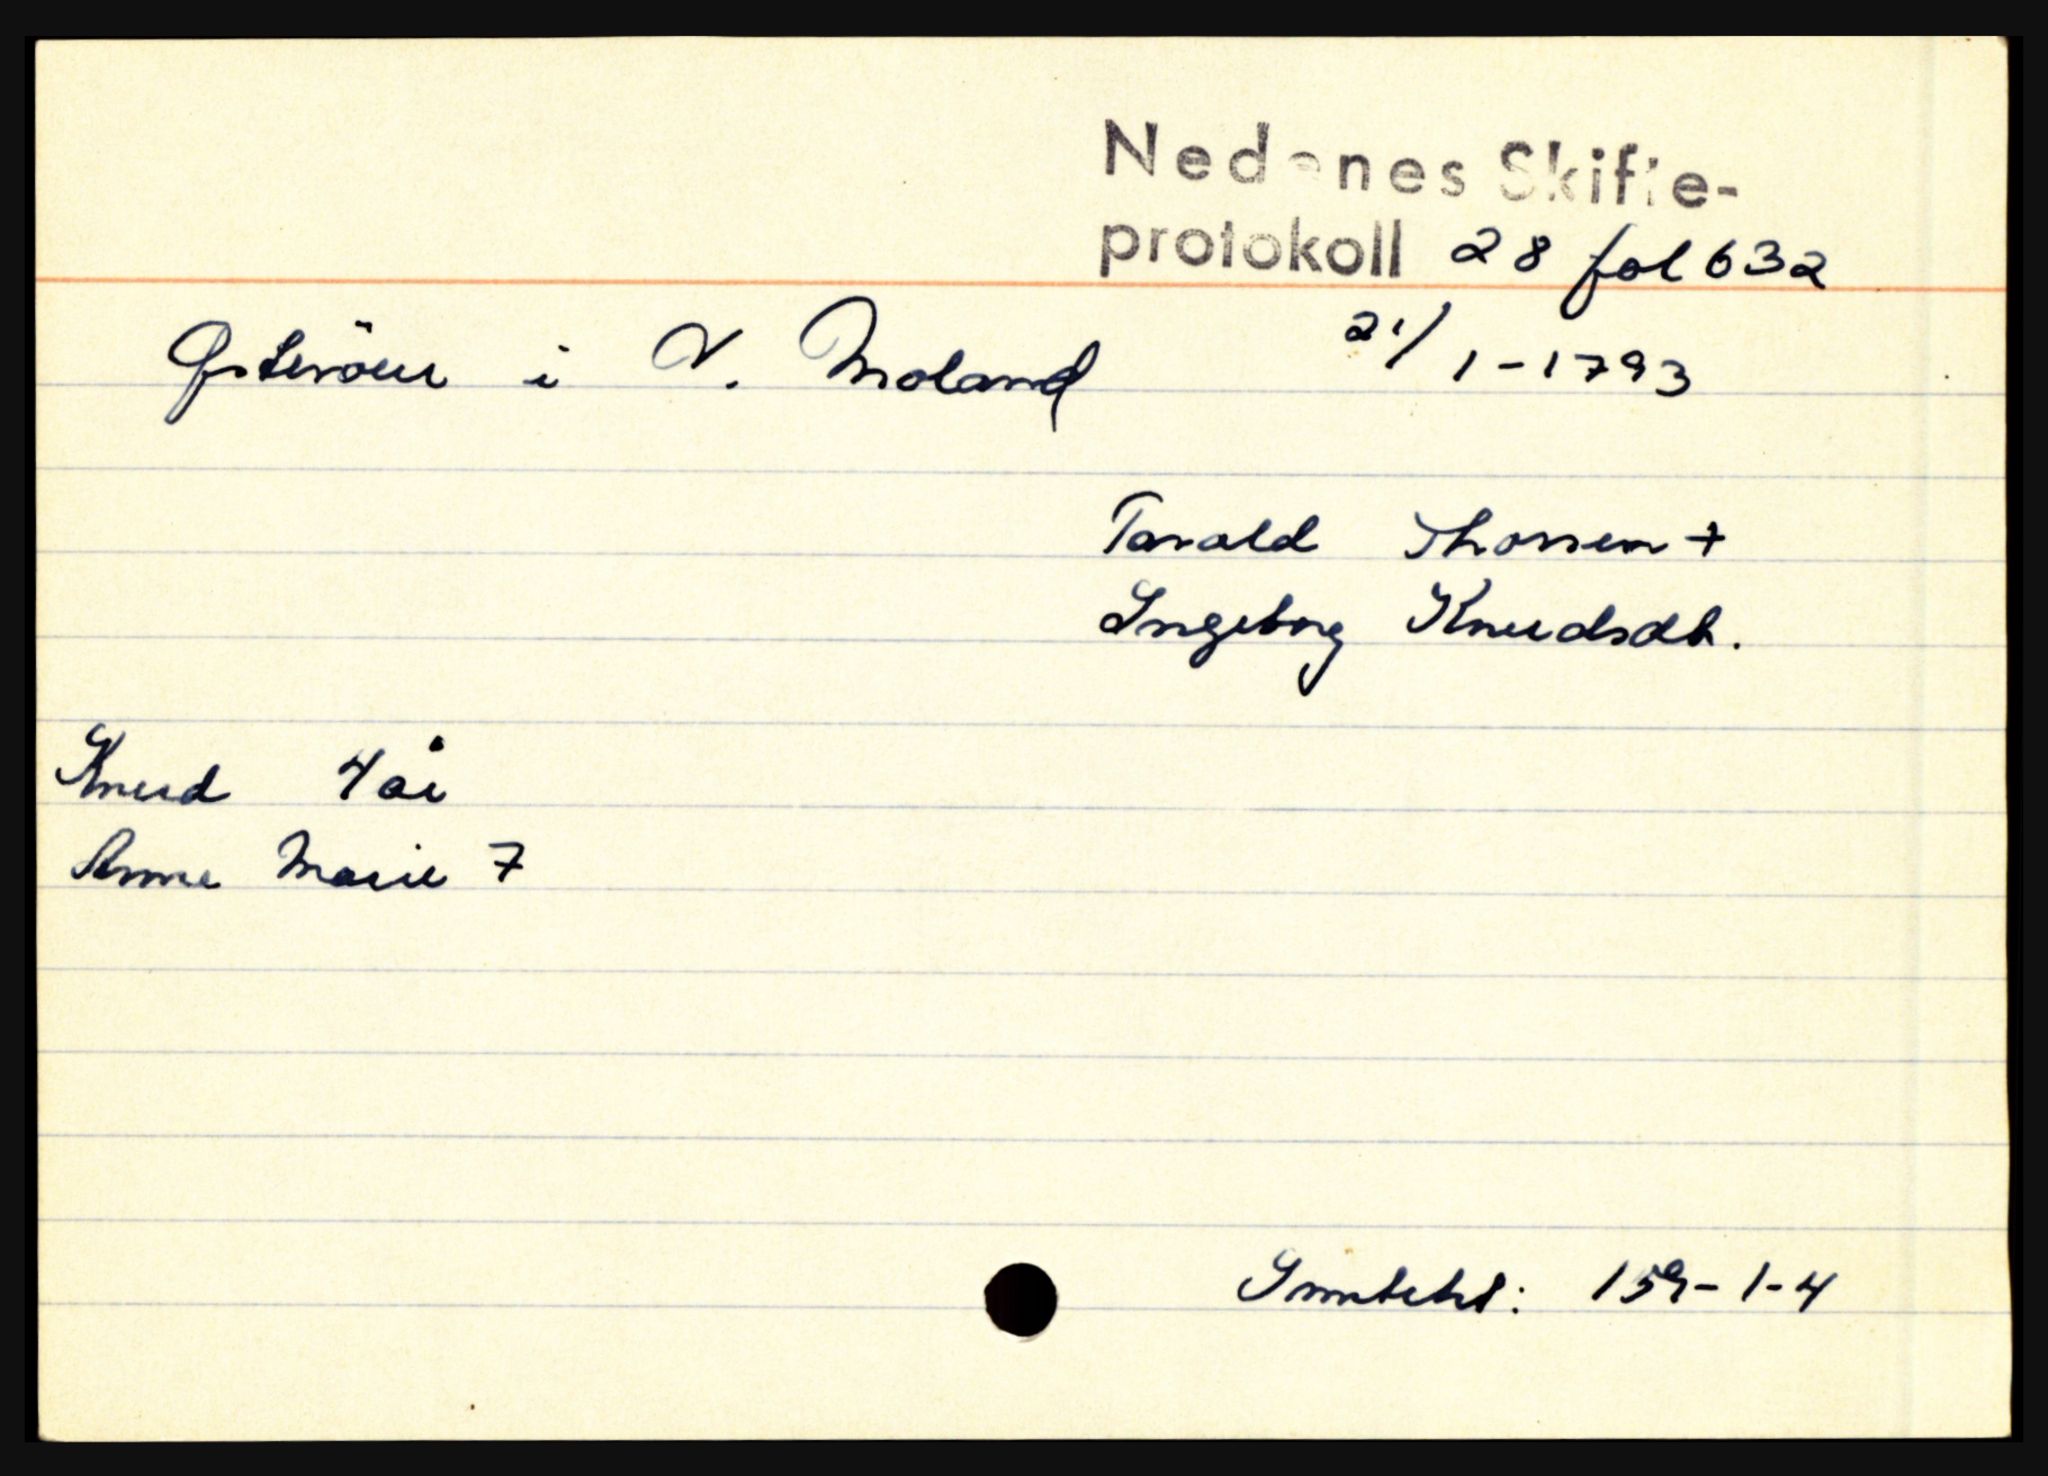 Nedenes Skifte-
protokoll 28 fol 632
Østeröen i V. Moland 21/1-1793
Tarald Thorsen +
Ingeborg Knudsdt.
Knud 4 år
Anne Marie 7
Inntekt: 159-1-4